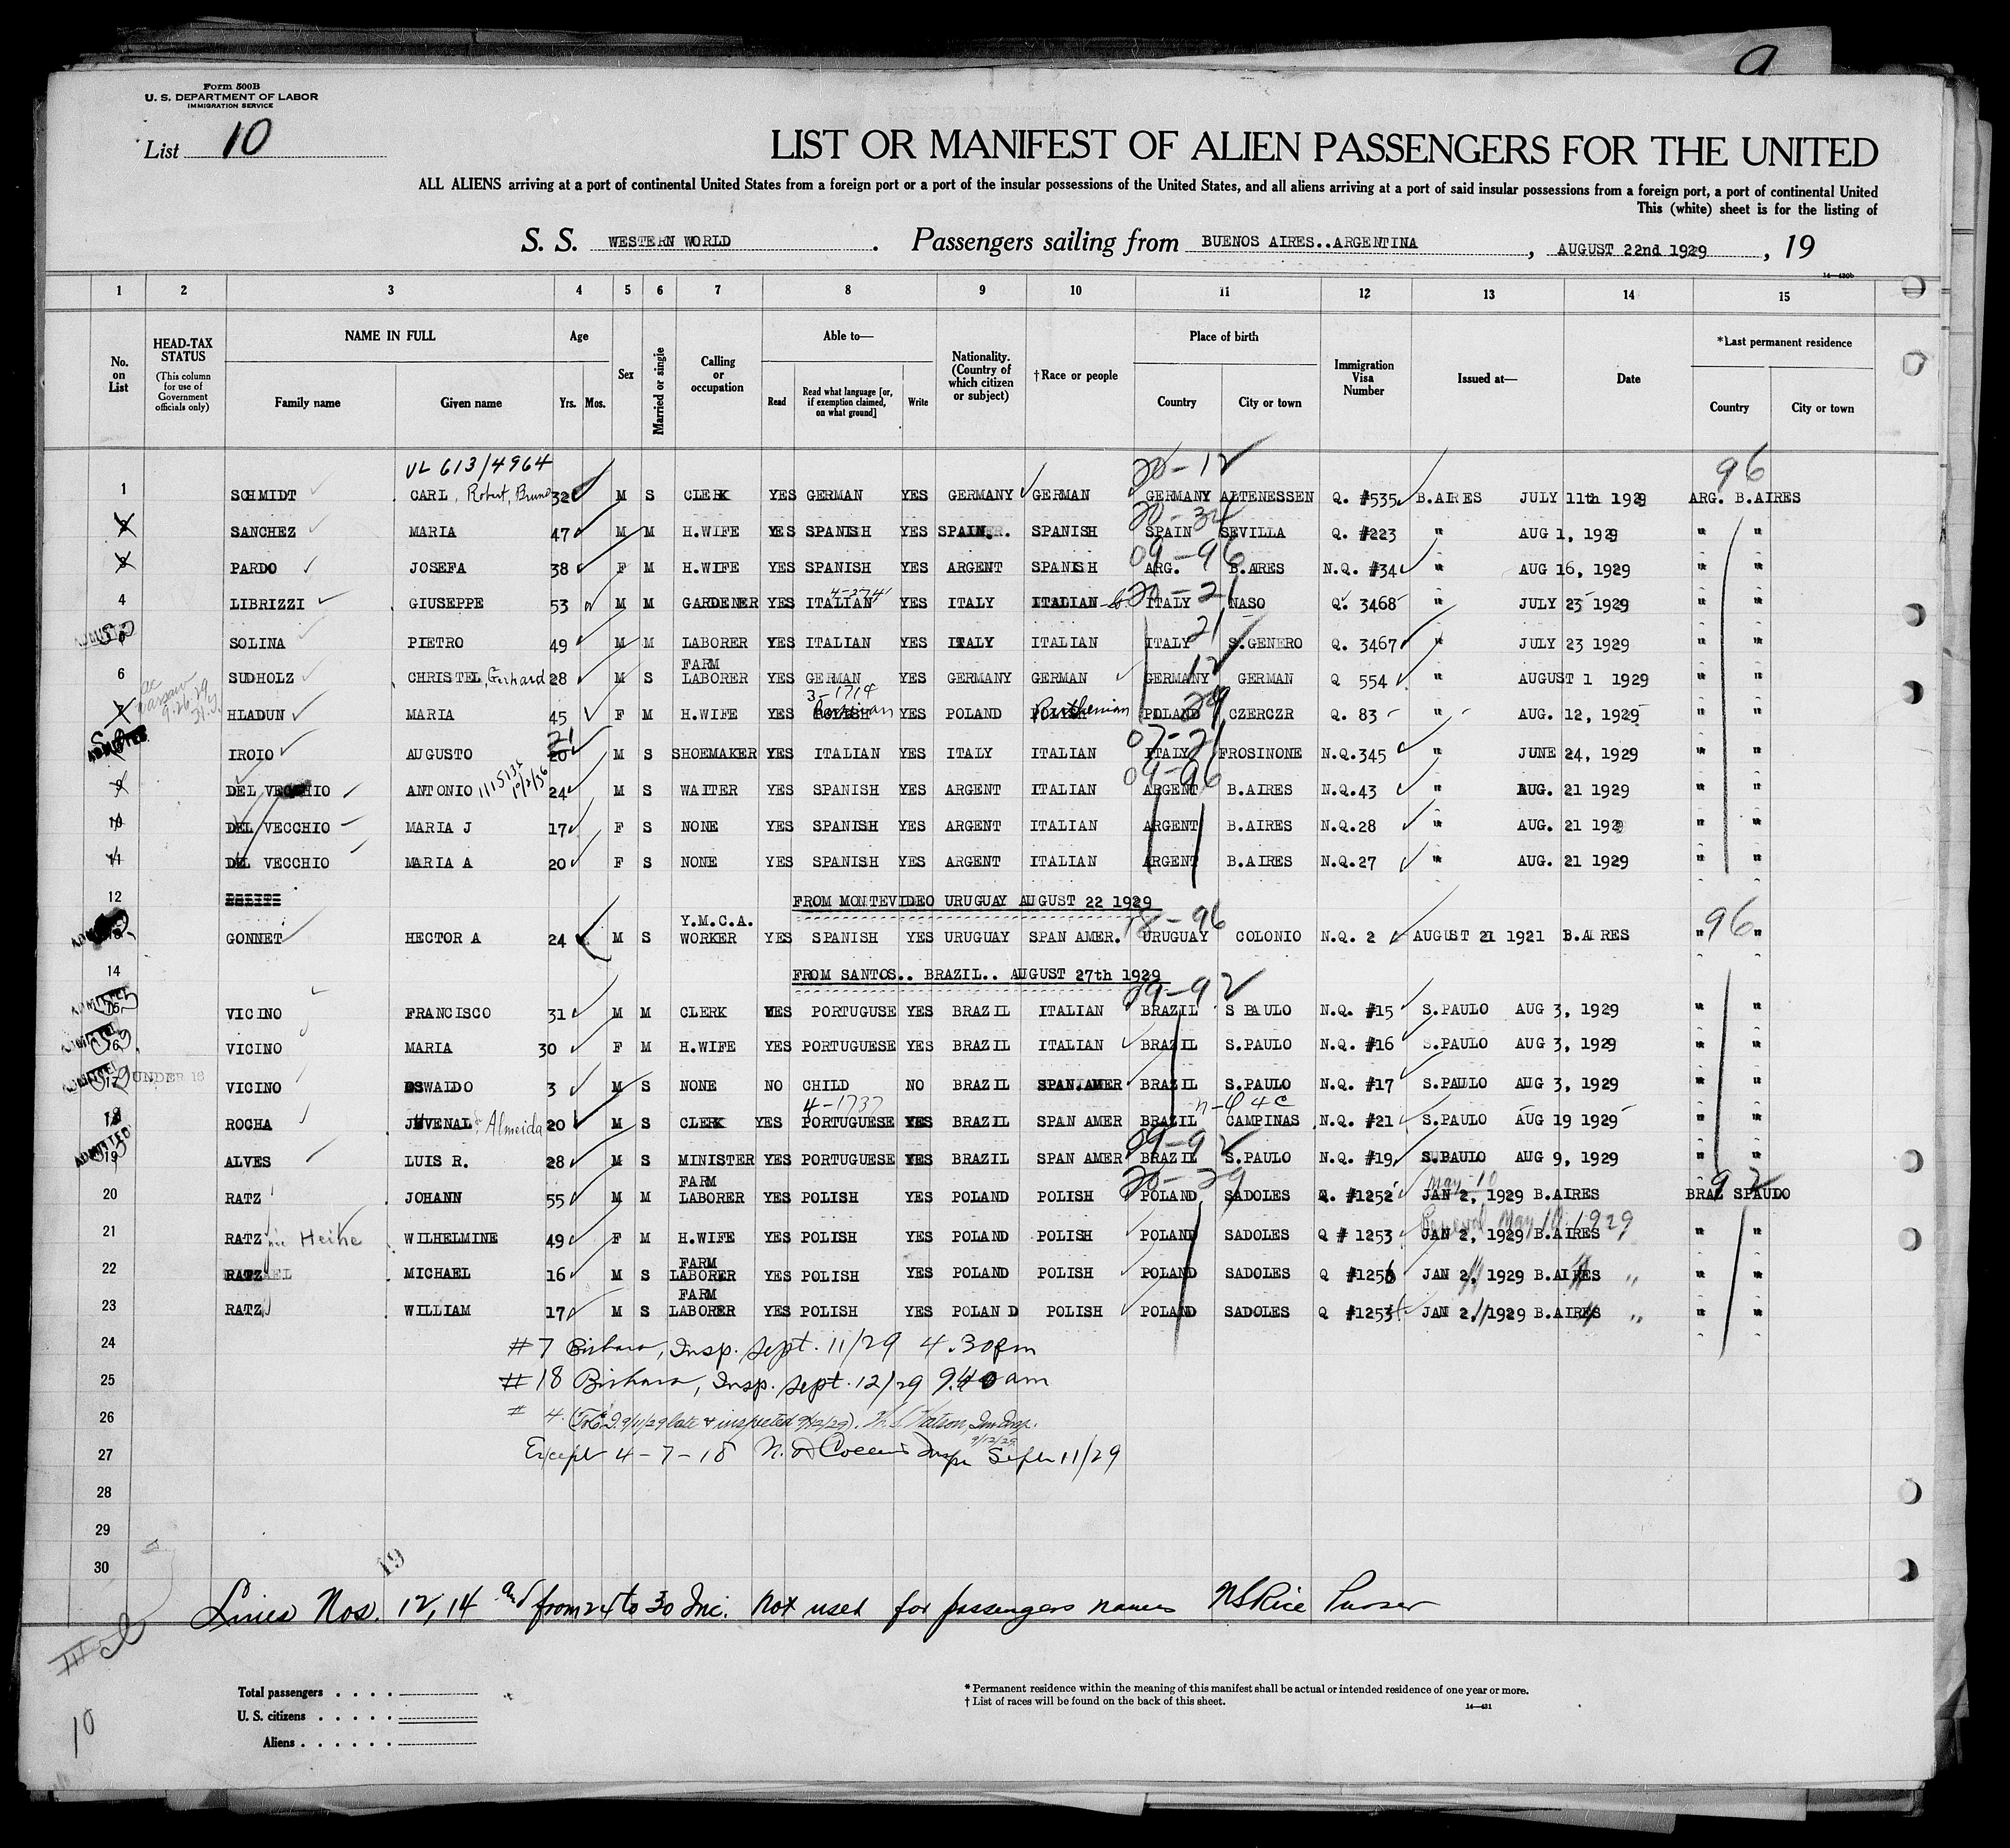 9
Form 500B
U. S. DEPARTMENT OF LABOR
IMMIGRATION SERVICE
List 10
LIST OR MANIFEST OF ALIEN PASSENGERS FOR THE UNITED
ALL ALIENS arriving at a port of continental United States from a foreign port or a port of the insular possessions of the United States, and all aliens arriving at a port of said insular possessions from a foreign port, a port of continental United
This (white) sheet is for the listing of
S. S. WESTERN WORLD . Passengers sailing from BUENOS AIRES..ARGENTINA , AUGUST 22nd 1929 , 19
14—430b
1 2 3 4 5 6 7 8 9 10 11 12 13 14 15
No. on List
HEAD-TAX STATUS
(This column for use of Government officials only)
NAME IN FULL
Family name Given name
Age
Yrs. Mos.
Sex
Married or single
Calling or occupation
Able to—
Read Read what language [or, if exemption claimed, on what ground] Write
Nationality. (Country of which citizen or subject)
†Race or people
Place of birth
Country City or town
Immigration Visa Number
Issued at—
Date
*Last permanent residence
Country City or town
VL 613/4964 20-12 96
1 SCHMIDT CARL, Robert, Bruno 32 M S CLERK YES GERMAN YES GERMANY GERMAN GERMANY ALTENESSEN Q. #535 B.AIRES JULY 11th 1929 ARG. B.AIRES
20-34
2 SANCHEZ MARIA 47 M M H.WIFE YES SPANISH YES SPAIN. SPANISH SPAIN SEVILLA Q. #223 " AUG 1, 1929 " "
09-96
3 PARDO JOSEFA 38 F M H.WIFE YES SPANISH YES ARGENT SPANISH ARG. B.ARES N.Q. #34 " AUG 16, 1929 " "
20-21
4 LIBRIZZI GIUSEPPE 53 M M GARDENER YES ITALIAN YES ITALY ITALIAN ITALY NASO Q. 3468 " JULY 23 1929 " "
21
ADMITTED SOLINA PIETRO 49 M M LABORER YES ITALIAN YES ITALY ITALIAN ITALY S.GENERO Q. 3467 " JULY 23 1929 " "
FARM 12
6 SUDHOLZ CHRISTEL, Gerhard 28 M S LABORER YES GERMAN YES GERMANY GERMAN GERMANY GERMAN Q 554 " AUGUST 1 1929 " "
3-1714 29
7 HLADUN MARIA 45 F M H.WIFE YES POLISH Russian YES POLAND POLISH Ruthenian POLAND CZERCZR Q. 83 " AUG. 12, 1929 " "
21 07-21
ADMITTED IROIO AUGUSTO 20 M S SHOEMAKER YES ITALIAN YES ITALY ITALIAN ITALY FROSINONE N.Q.345 " JUNE 24, 1929 " "
09-96
9 DEL VECCHIO ANTONIO 24 M S WAITER YES SPANISH YES ARGENT ITALIAN ARGENT B.AIRES N.Q.43 " AUG. 21 1929 " "
10 DEL VECCHIO MARIA J 17 F S NONE YES SPANISH YES ARGENT ITALIAN ARGENT B.AIRES N.Q.28 " AUG. 21 1929 " "
11 DEL VECCHIO MARIA A 20 F S NONE YES SPANISH YES ARGENT ITALIAN ARGENT B.AIRES N.Q.27 " AUG. 21 1929 " "
12 FROM MONTEVIDEO URUGUAY AUGUST 22 1929
Y.M.C.A. 18-96 96
GONNET HECTOR A 24 M S WORKER YES SPANISH YES URUGUAY SPAN AMER. URUGUAY COLONIO N.Q. 2 AUGUST 21 1921 B.AIRES " "
14 FROM SANTOS.. BRAZIL.. AUGUST 27th 1929
09-92
ADMITTED 15 VICINO FRANCISCO 31 M M CLERK YES PORTUGUSE YES BRAZIL ITALIAN BRAZIL S PAULO N.Q. #15 S.PAULO AUG 3, 1929 " "
ADMITTED 16 VICINO MARIA 30 F M H.WIFE YES PORTUGUESE YES BRAZIL ITALIAN BRAZIL S.PAULO N.Q. #16 S.PAULO AUG 3, 1929 " "
ADMITTED 17 UNDER 16 VICINO OSWALDO 3 M S NONE NO CHILD NO BRAZIL SPAN.AMER BRAZIL S.PAULO N.Q. #17 S.PAULO AUG 3, 1929 " "
4-1737
18 ROCHA JUVENAL de Almeida 20 M S CLERK YES PORTUGUESE YES BRAZIL SPAN AMER BRAZIL CAMPINAS N.Q. #21 S.PAULO AUG 19 1929 " "
09-92
ADMITTED 19 ALVES LUIS R. 28 M S MINISTER YES PORTUGUESE YES BRAZIL SPAN AMER BRAZIL S.PAULO N.Q. #19 S.PAULO AUG 9, 1929 " "
FARM 20-29 May-10 92
20 RATZ JOHANN 55 M M LABORER YES POLISH YES POLAND POLISH POLAND SADOLES Q. #1252 JAN 2, 1929 B.AIRES BRAZ SPAUDO
Renewal May 10 1929
21 RATZ née Heike WILHELMINE 49 F M H.WIFE YES POLISH YES POLAND POLISH POLAND SADOLES Q # 1253 JAN 2, 1929 B.AIRES " "
FARM
22 RATZ MICHAEL 16 M S LABORER YES POLISH YES POLAND POLISH POLAND SADOLES Q #1256 JAN 2, 1929 B.AIRES " " "
FARM
23 RATZ WILLIAM 17 M S LABORER YES POLISH YES POLAND POLISH POLAND SADOLES Q #1253 JAN 2, 1929 B.AIRES " " "
24 #7 Insp. Sept. 11/29 4.30pm
25 #18 Insp. Sept. 12/29 9.40 am
26 # 4 late & inspected 9/12/29). Watson, Imm Insp.
9/12/29
27 Except 4-7-18 Insp Sept 11/29
28
29
30
19
Lines Nos. 12, 14 and from 24 to 30 Inc. Not used for passengers names NS Rice Purser
10
Total passengers
U. S. citizens
Aliens
* Permanent residence within the meaning of this manifest shall be actual or intended residence of one year or more.
† List of races will be found on the back of this sheet.
14—431